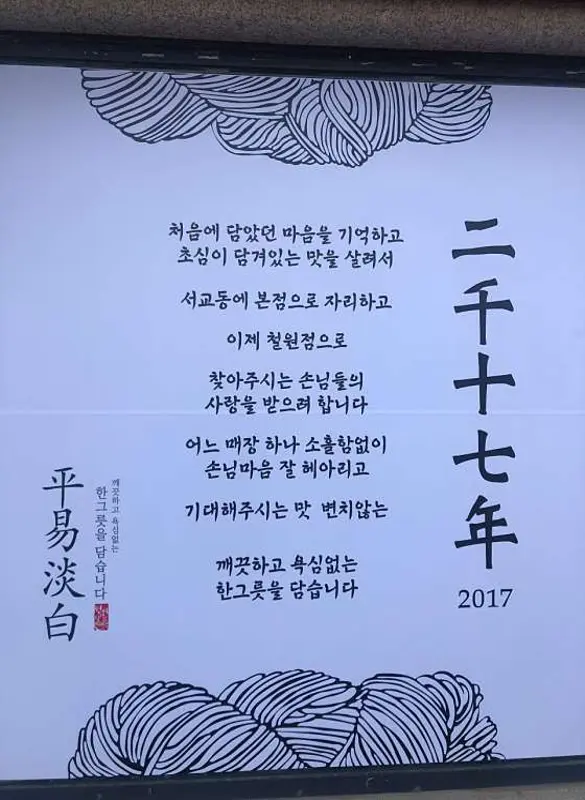 二千十七年
2017
처음에 담았던 마음을 기억하고
초심이 담겨있는 맛을 살려서
서교동에 본점으로 자리하고
이제 철원점으로
찾아주시는 손님들의
사랑을 받으려 합니다
어느 매장 하나 소홀함없이
손님마음 잘 헤아리고
기대해주시는 맛 변치않는
깨끗하고 욕심없는
한그릇을 담습니다
깨끗하고 욕심없는
한그릇을 담습니다
平易淡白